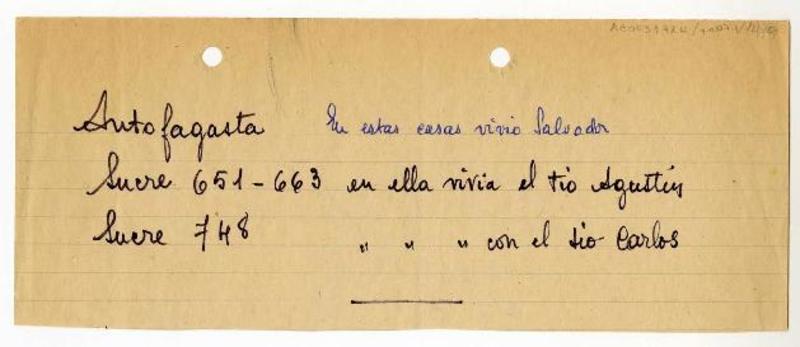 Antofagasta En estas casas vivio Salvador
Sucre 651-663 en ella vivia el tio Agustín
Sucre 748 " " " con el tio Carlos